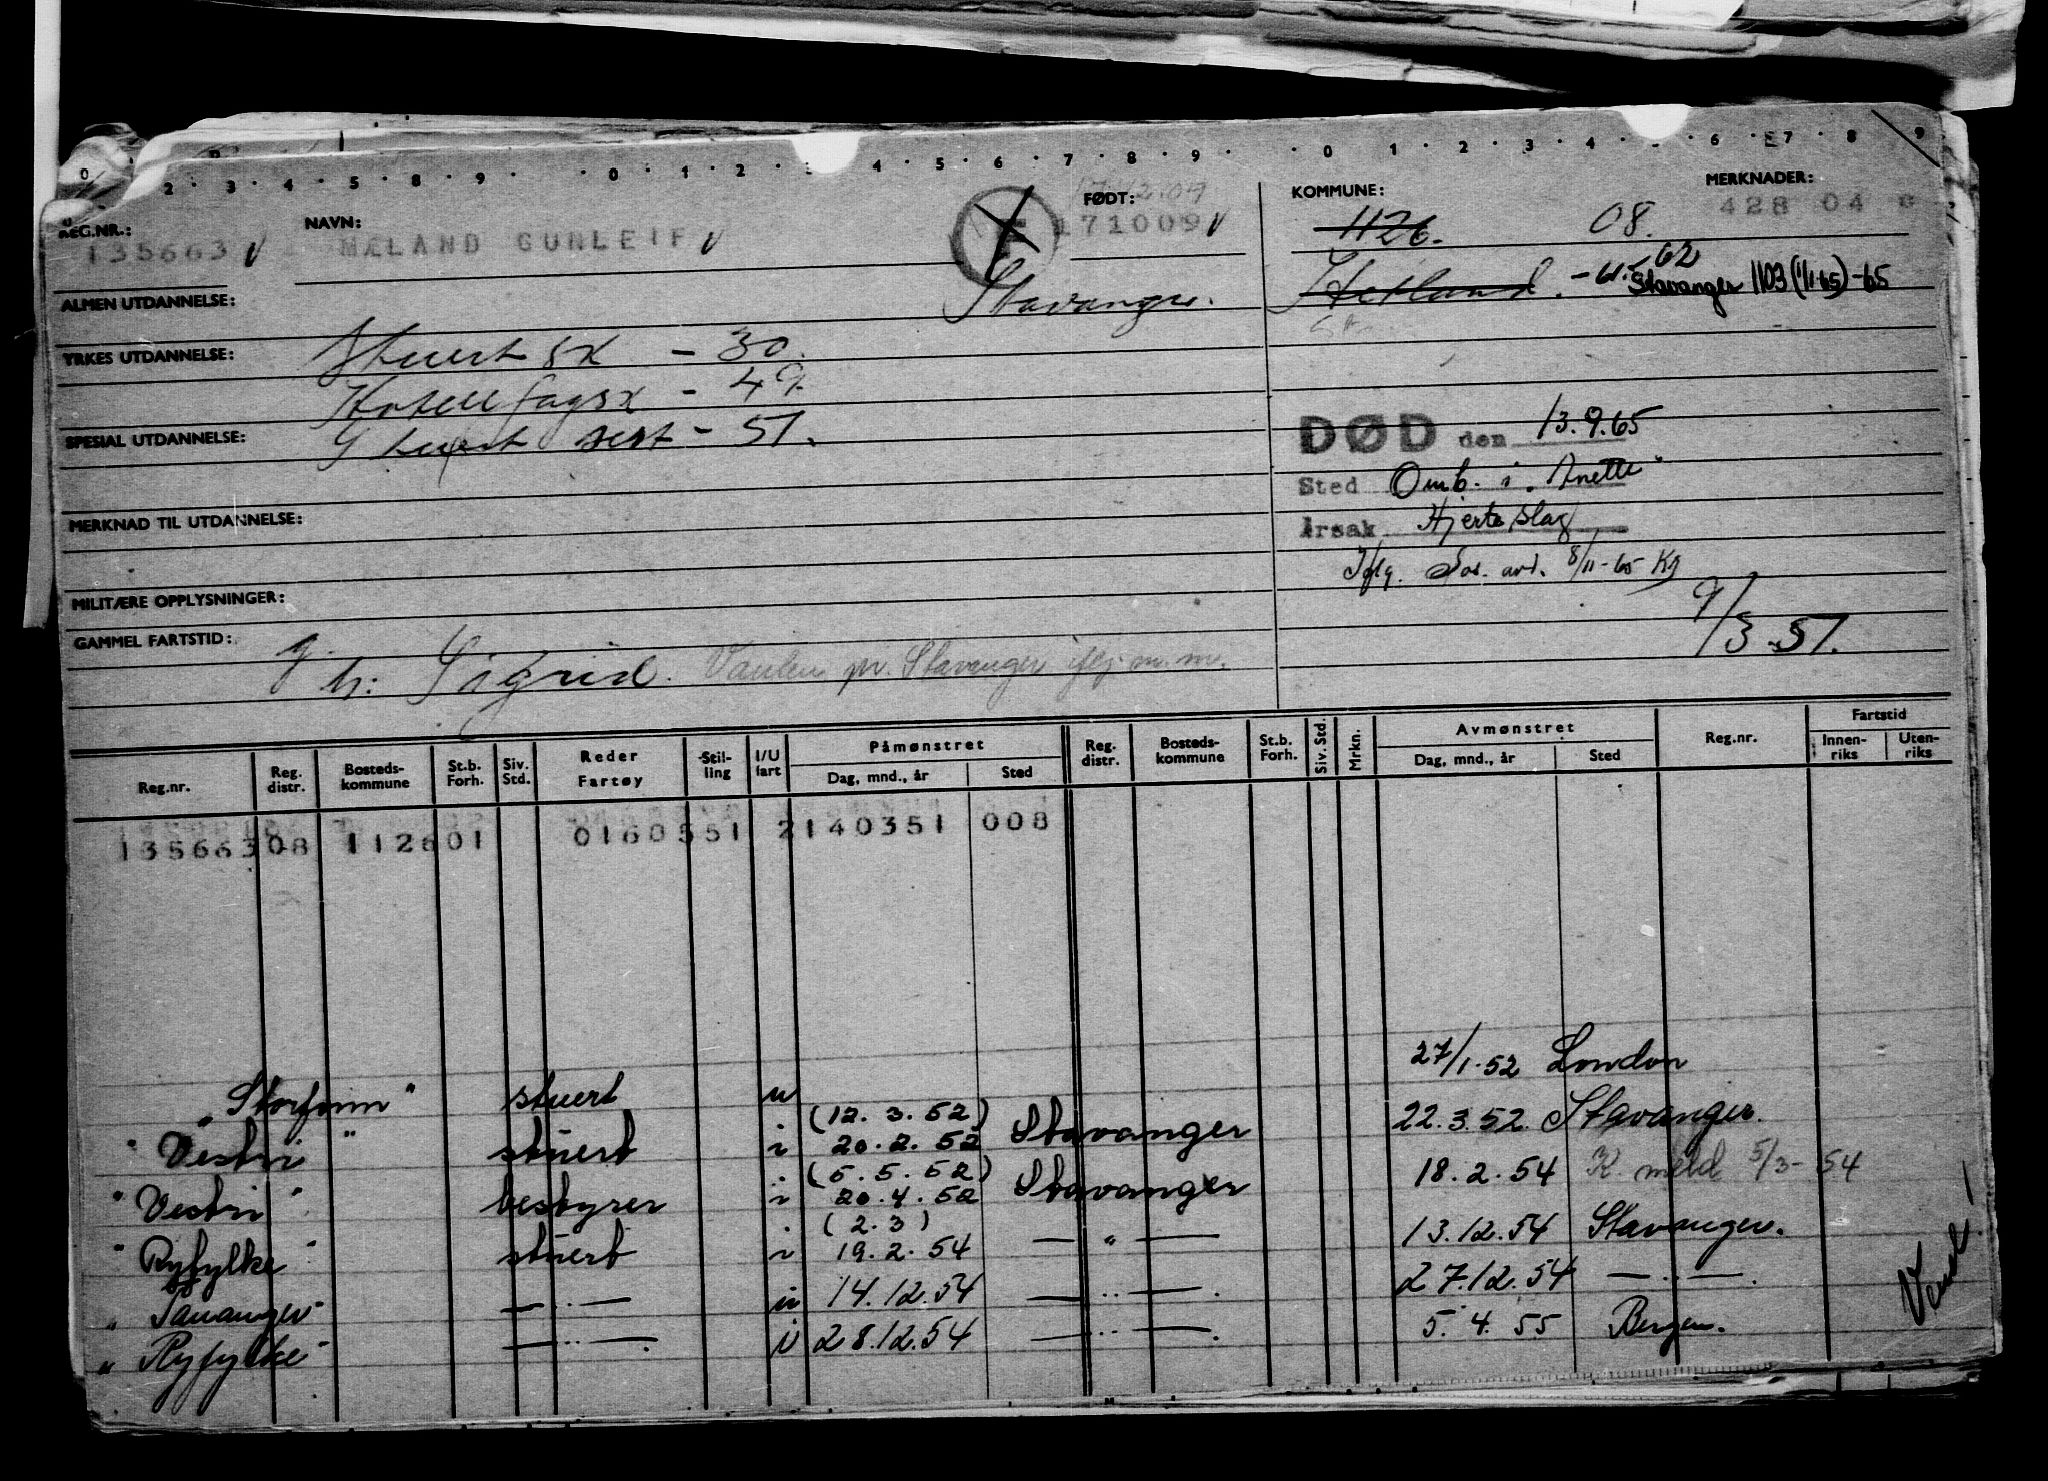 2 · 3 · 4 · 5 · 8 · 9 · 0 · 1 · 2 · 4 · 5 · 6 · 7 · 8 · 9 · 0 · 1 · 2 · 3 · 4 · 6 · 7 · 8 · 9
REG.NR.: NAVN: FØDT: KOMMUNE: MERKNADER:
135663 MÆLAND GUNLEIF 171009 1126. 08. 428 04
Stavanger. Hetland. - 62 Stavanger 1103 (1/1-65) -65
ALMEN UTDANNELSE:
YRKES UTDANNELSE: Stuert sk - 30.
Hotell fagsk - 49
SPESIAL UTDANNELSE: Stuert sert - 51.
DØD den 13.9.65
Sted Omb. i "Anette"
Årsak Hjerteslag
Iflg. Sos. avd. 8/11-65 Kg
MERKNAD TIL UTDANNELSE:
MILITÆRE OPPLYSNINGER:
9/3-51.
GAMMEL FARTSTID:
g. h: Sigrid. Vaulen pr. Stavanger iflg. m.m.
Reg.nr. Reg. distr. Bosteds-kommune St.b. Forh. Siv. Std. Reder Fartøy Stil-ling I/U fart Påmønstret Dag, mnd., år Sted Reg. distr. Bosteds-kommune St.b. Forh. Siv. Std. Mrkn. Avmønstret Dag, mnd., år Sted Reg.nr. Fartstid Innen-riks Uten-riks
135663 08 112601 0160551 2140351 008
"Storfonn" stuert u 27/1.52 London
"Vestri" stuert i (12.3.52) 20.2.52 Stavanger 22.3.52. Stavanger.
"Vestri" bestyrer i (5.5.52) 20.4.52 Stavanger 18.2.54 K. meld 5/3-54
"Ryfylke" stuert i (2.3) 19.2.54 — " — 13.12.54 Stavanger.
"Tananger" — " — u 14.12.54 — " —. 27.12.54 — " —.
"Ryfylke" — " —. i 28.12.54 — " —. 5.4.55 Bergen.
Vend!